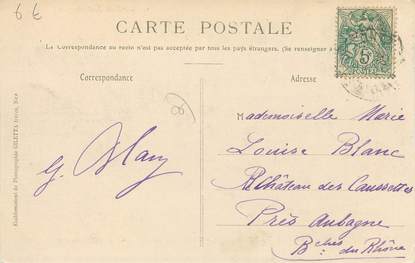 6 €
CARTE POSTALE
La Correspondance au recto n'est pas acceptée par tous les pays étrangers. (Se renseigner à
Correspondance
Adresse
5
Etablissement de Photographie GILETTA frères, Nice
G. Blanc
Mademoiselle Marie
Louise Blanc
Château des Caussettes
Près Aubagne
Bches du Rhône